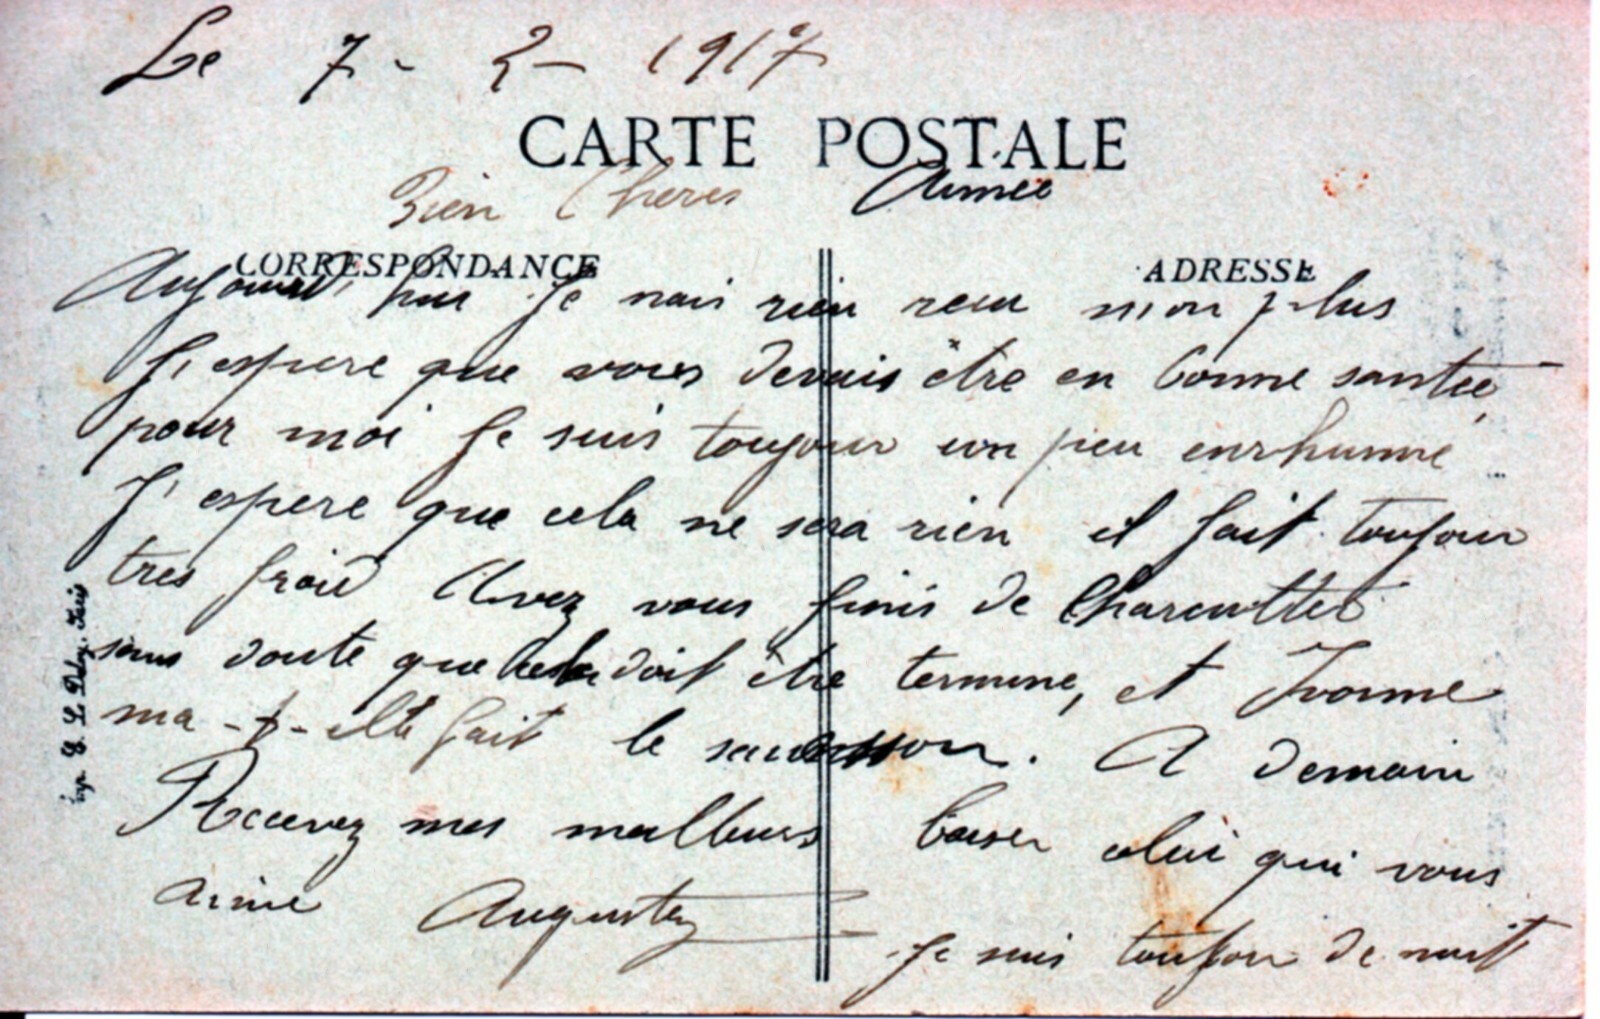 Le 7 - 2 - 1917
CARTE POSTALE
Bien Cheres Aimée
CORRESPONDANCE
ADRESSE
Aujourd'hui Je nais rien recu non plus
J'espere que vous devais être en bonne santée
pour moi Je suis toujour un peu enrhumé
J'espere que cela ne sera rien il fait toujour
tres froid Avez vous finis de Charcutter
sans doute que cela doit être terminé, et Ivonne
ma-t-elle fait le saucisson. A demain
Recevez mes meilleurs baiser celui qui vous
aime Auguste
Je suis toujour de nuit